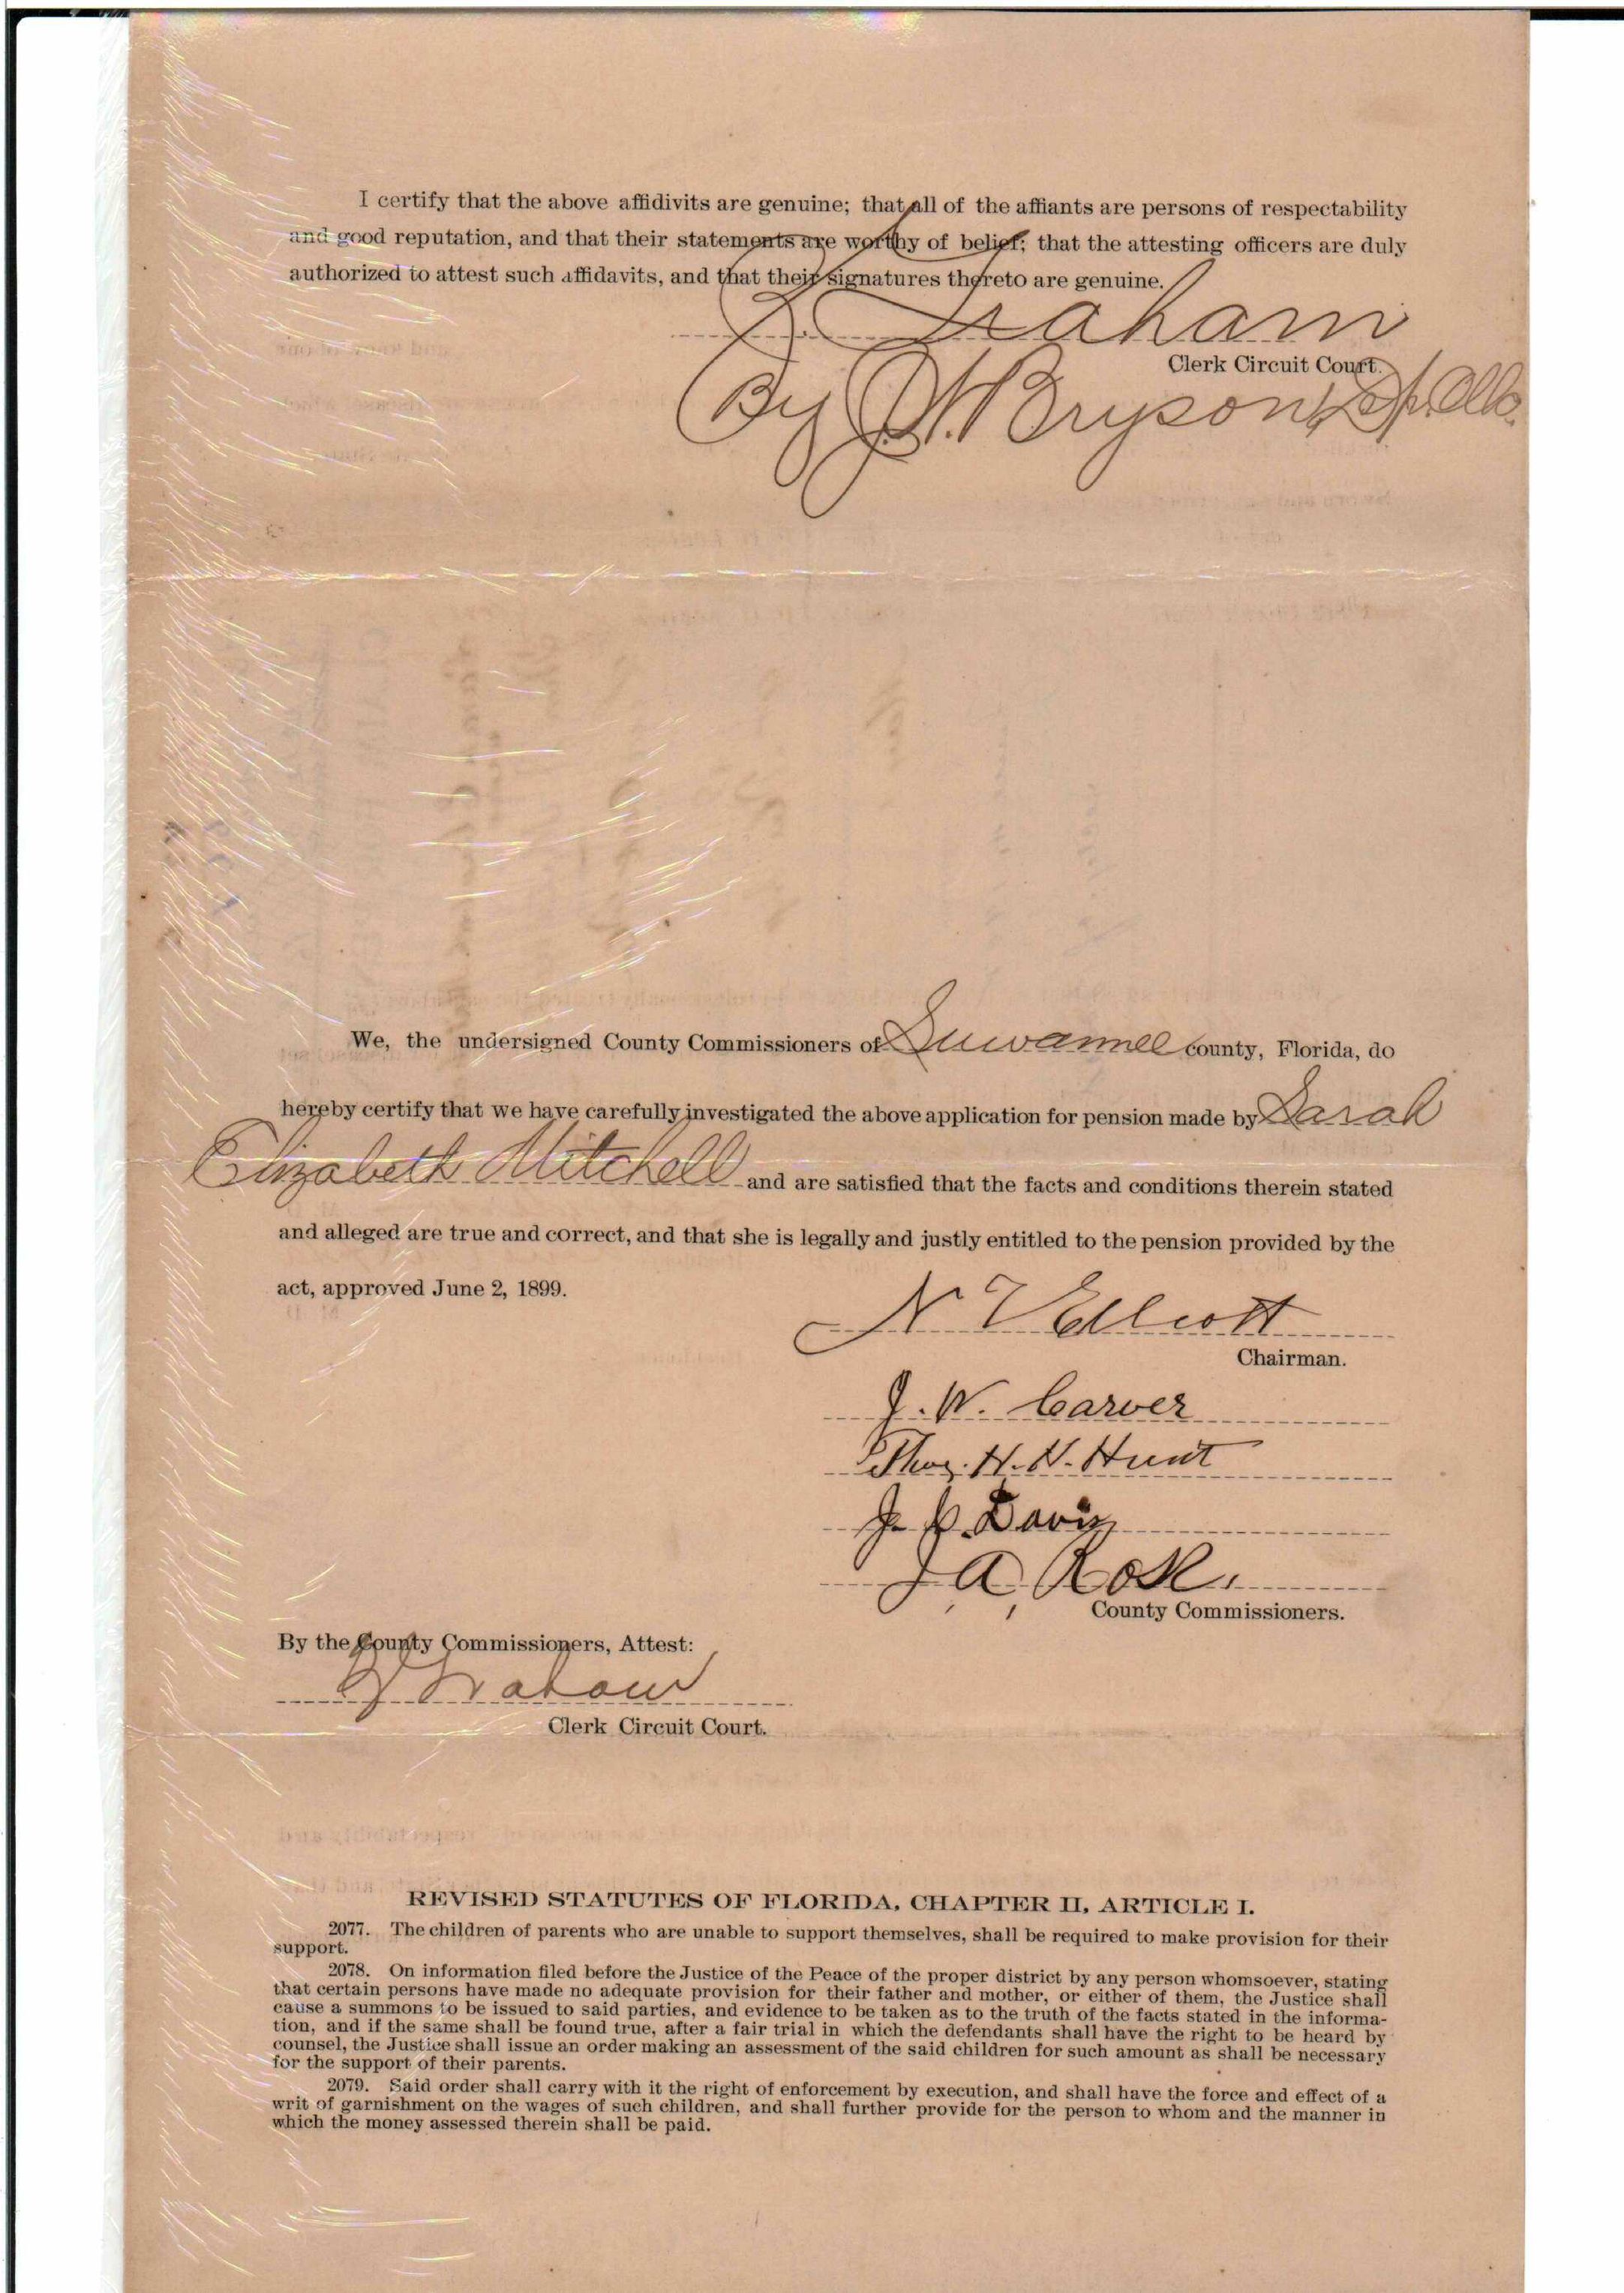 I certify that the above affidivits are genuine; that all of the affiants are persons of respectability
and good reputation, and that their statements are worthy of belief; that the attesting officers are duly
authorized to attest such affidavits, and that their signatures thereto are genuine.
Graham
Clerk Circuit Court.
By Bryson,
We, the undersigned County Commissioners of Suwannee county, Florida, do
hereby certify that we have carefully investigated the above application for pension made by Sarah
Elizabeth Mitchell and are satisfied that the facts and conditions therein stated
and alleged are true and correct, and that she is legally and justly entitled to the pension provided by the
act, approved June 2, 1899.
N V Ellicott
Chairman.
J. W. Carver
H. N. Hunt
Davis
J A Rose
County Commissioners.
By the County Commissioners, Attest:
Graham
Clerk Circuit Court.
REVISED STATUTES OF FLORIDA, CHAPTER II, ARTICLE I.
2077. The children of parents who are unable to support themselves, shall be required to make provision for their
support.
2078. On information filed before the Justice of the Peace of the proper district by any person whomsoever, stating
that certain persons have made no adequate provision for their father and mother, or either of them, the Justice shall
cause a summons to be issued to said parties, and evidence to be taken as to the truth of the facts stated in the informa-
tion, and if the same shall be found true, after a fair trial in which the defendants shall have the right to be heard by
counsel, the Justice shall issue an order making an assessment of the said children for such amount as shall be necessary
for the support of their parents.
2079. Said order shall carry with it the right of enforcement by execution, and shall have the force and effect of a
writ of garnishment on the wages of such children, and shall further provide for the person to whom and the manner in
which the money assessed therein shall be paid.